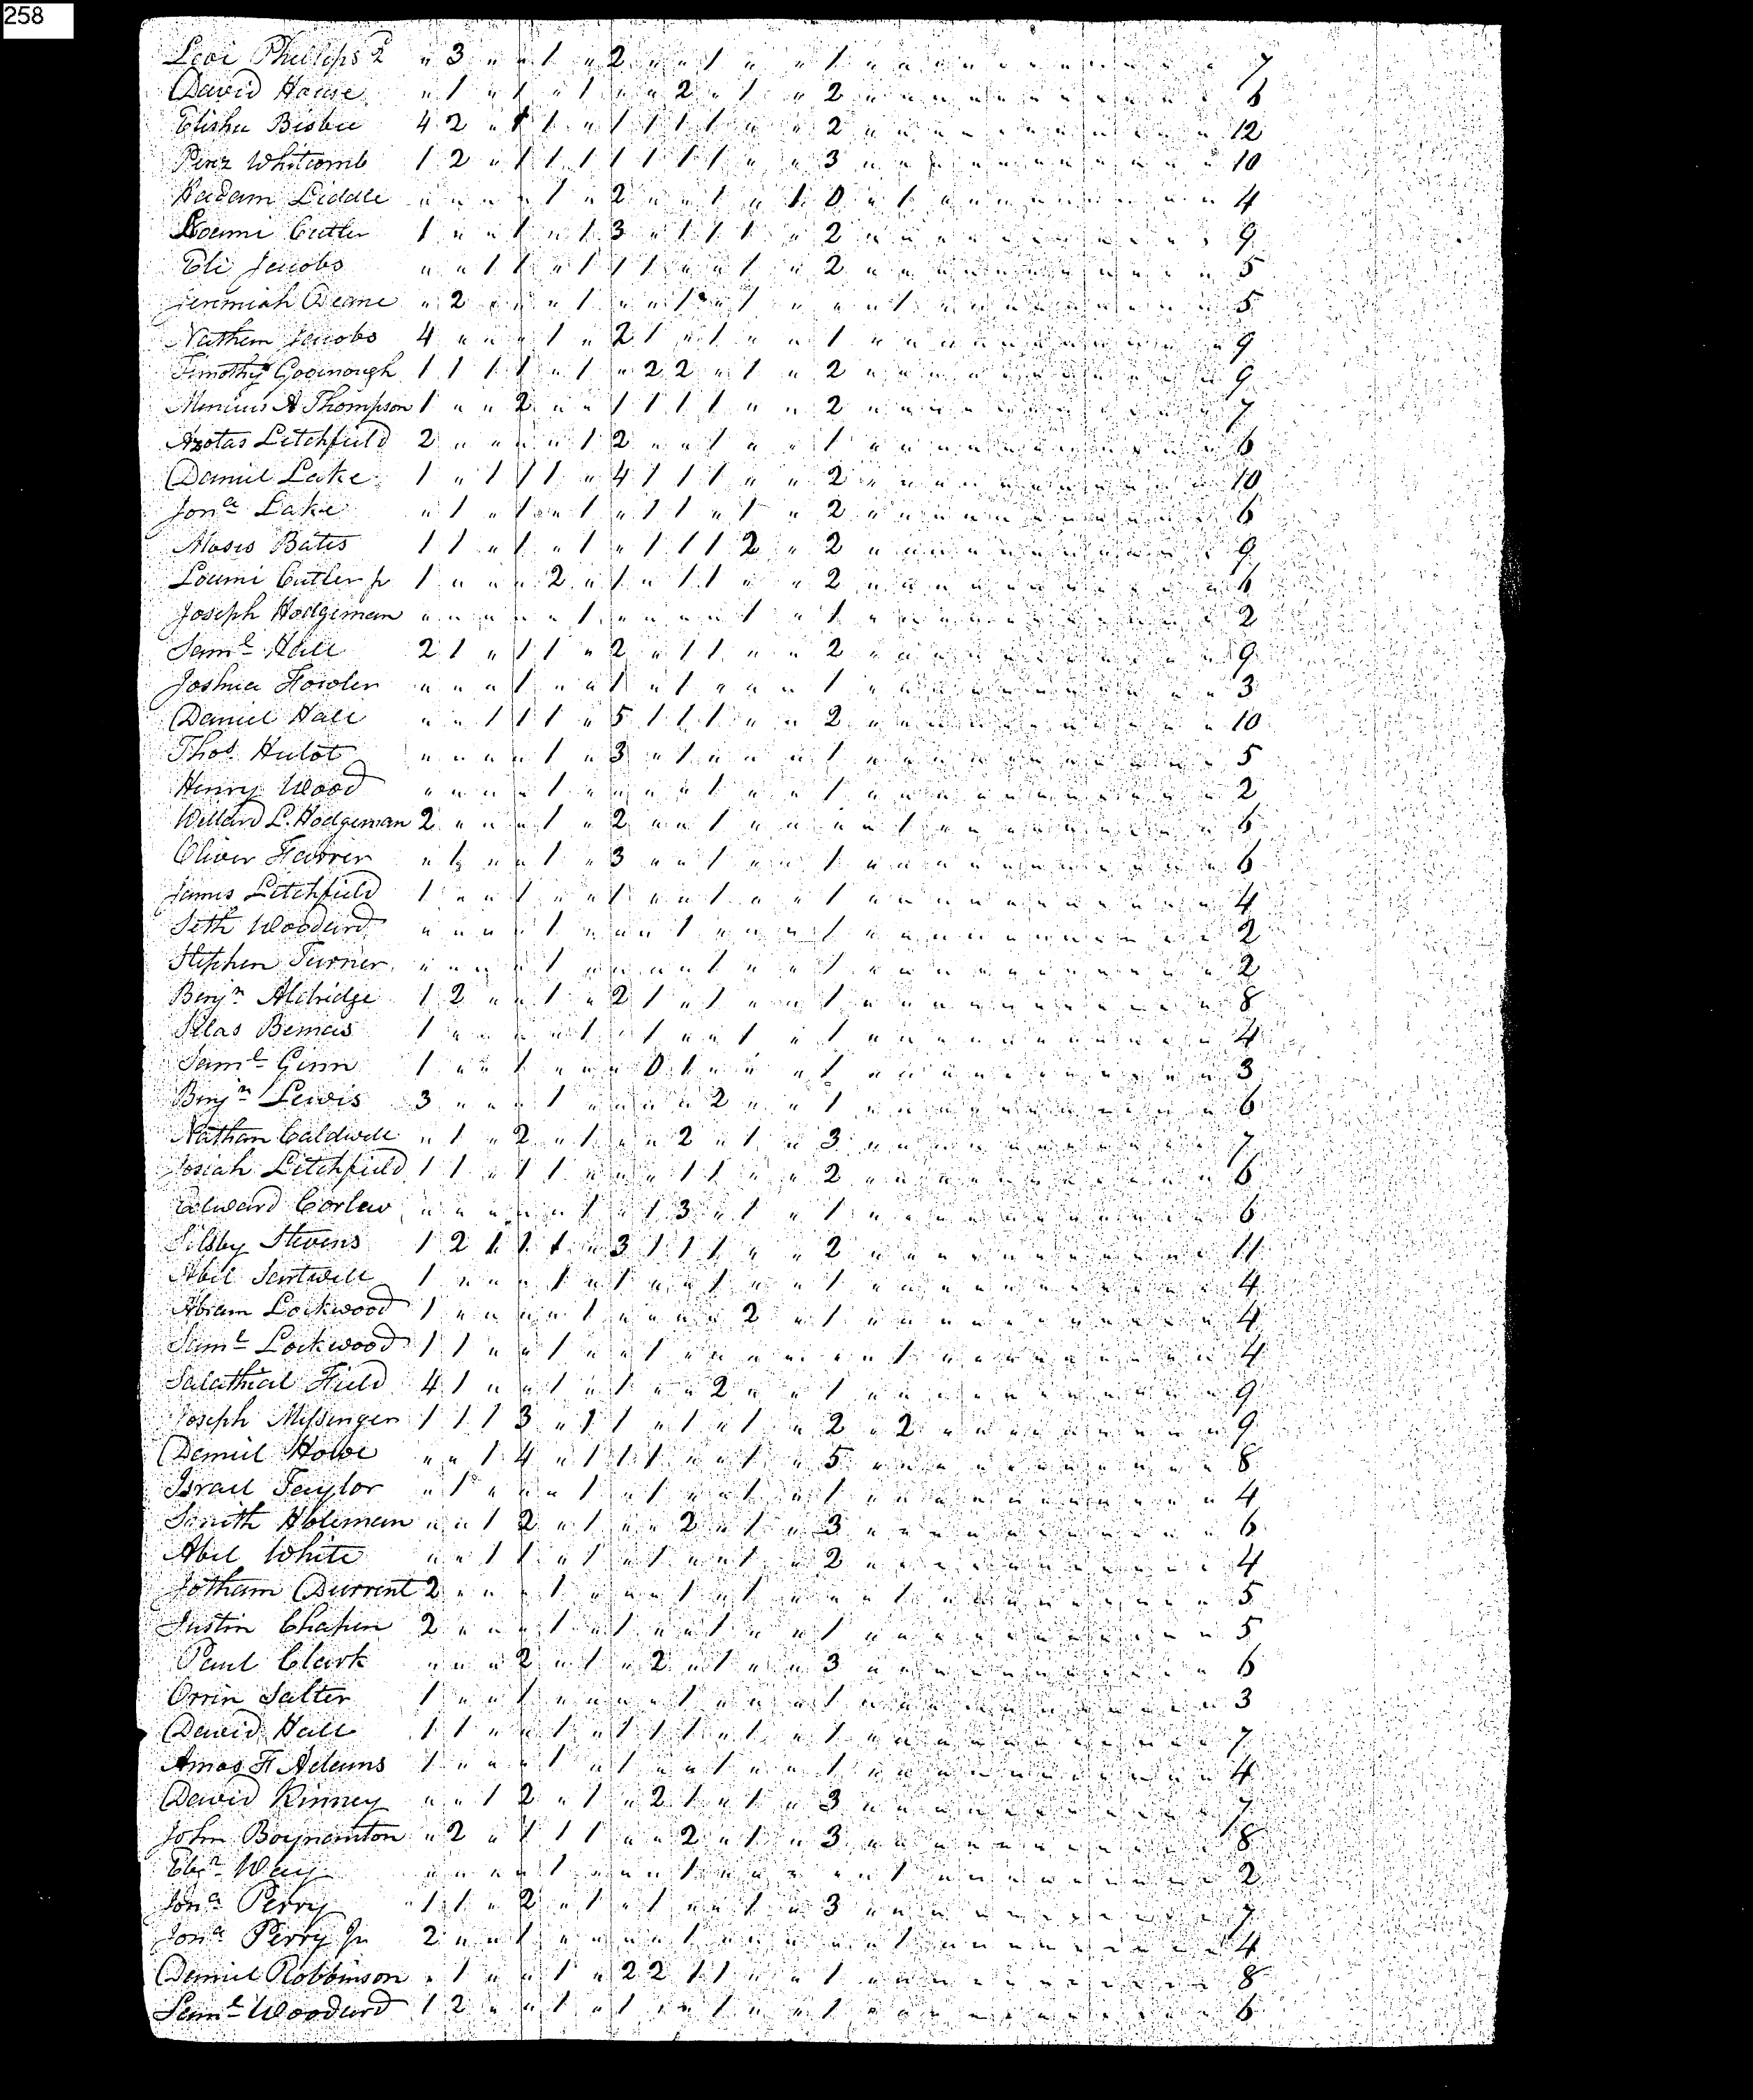 258
Levi Phillips 2 " 3 " " 1 " 2 " " 1 " " 1 " " " " " " " " " " " 7
David House " 1 " 1 " 1 " " 2 " 1 " 2 " " " " " " " " " " " 6
Elisha Bisbee 4 2 " 1 1 " 1 1 1 1 " " 2 " " " " " " " " " " " 12
Perez Whitcomb 1 2 " 1 1 1 1 1 1 1 " " 3 " " " " " " " " " " " 10
Liddle " " " " 1 " 2 " " 1 " 1 0 " 1 " " " " " " " " " 4
Loami Cutler 1 " " 1 " 1 3 " 1 1 1 " 2 " " " " " " " " " " " 9
Eli Jacobs " " 1 1 " 1 1 1 " " 1 " 2 " " " " " " " " " " " 5
Jeremiah Deane " 2 " " " 1 " " 1 " 1 " " " 1 " " " " " " " " " 5
Nathan Jacobs 4 " " " 1 " 2 1 " 1 " " 1 " " " " " " " " " " " 9
Timothy Goodnough 1 1 1 1 " 1 " 2 2 " 1 " 2 " " " " " " " " " " " 9
A Thompson 1 " " 2 " " 1 1 1 1 " " 2 " " " " " " " " " " " 7
Azotas Litchfield 2 " " " " 1 2 " " 1 " " 1 " " " " " " " " " " " 6
Daniel Lake 1 " 1 1 1 " 4 1 1 1 " " 2 " " " " " " " " " " " 10
Jona Lake " 1 " 1 " 1 " 1 1 " 1 " 2 " " " " " " " " " " " 6
Moses Bates 1 1 " 1 " 1 " 1 1 1 2 " 2 " " " " " " " " " " " 9
Loami Cutler Jr 1 " " " 2 " 1 " 1 1 " " 2 " " " " " " " " " " " 6
Joseph Hodgeman " " " " " 1 " " " " 1 " 1 " " " " " " " " " " " 2
Saml Hall 2 1 " 1 1 " 2 " 1 1 " " 2 " " " " " " " " " " " 9
Joshua Fowler " " " 1 " " 1 " 1 " " " 1 " " " " " " " " " " " 3
Daniel Hall " " 1 1 1 " 5 1 1 1 " " 2 " " " " " " " " " " " 10
Thos Hulot " " " " 1 " 3 " 1 " " " 1 " " " " " " " " " " " 5
Henry Wood " " " " 1 " " " 1 " " " 1 " " " " " " " " " " " 2
Willard L. Hodgeman 2 " " " 1 " 2 " " 1 " " " " 1 " " " " " " " " " 6
Oliver Farrer " 1 " " 1 " 3 " " 1 " " 1 " " " " " " " " " " " 6
James Litchfield 1 " " 1 " " 1 " " 1 " " 1 " " " " " " " " " " " 4
Seth Woodard " " " " 1 " " " 1 " " " 1 " " " " " " " " " " " 2
Stephen Turner " " " " 1 " " " " 1 " " 1 " " " " " " " " " " " 2
Benjn Aldridge 1 2 " " 1 " 2 1 " 1 " " 1 " " " " " " " " " " " 8
Silas Bemas 1 " " " " 1 " 1 " " 1 " 1 " " " " " " " " " " " 4
Saml Ginn 1 " " 1 " " " 0 1 " " " 1 " " " " " " " " " " " 3
Benjn Lewis 3 " " " 1 " " " " 2 " " 1 " " " " " " " " " " " 6
Nathan Caldwell " 1 " 2 " 1 " " 2 " 1 " 3 " " " " " " " " " " " 7
Josiah Litchfield 1 1 " 1 1 " " " 1 1 " " 2 " " " " " " " " " " " 6
Edward Corlew " " " " " 1 " 1 3 " 1 " 1 " " " " " " " " " " " 6
Silsby Stevens 1 2 1 1 1 " 3 1 1 1 " " 2 " " " " " " " " " " " 11
Abel Sartwell 1 " " " 1 " 1 " " 1 " " 1 " " " " " " " " " " " 4
Abram Lockwood 1 " " " " 1 " " " " 2 " 1 " " " " " " " " " " " 4
Saml Lockwood 1 1 " " 1 " " 1 " " " " " " 1 " " " " " " " " " 4
Salathial Field 4 1 " " 1 " 1 " " 2 " " 1 " " " " " " " " " " " 9
Joseph Messinger 1 1 1 3 " 1 1 " 1 " 1 " 2 " 2 " " " " " " " " " 9
Daniel Howe " " 1 4 " 1 1 1 " " 1 " 5 " " " " " " " " " " " 8
Israel Taylor " 1 " " " 1 " 1 " " 1 " 1 " " " " " " " " " " " 4
Smith Holeman " " 1 2 " 1 " " 2 " 1 " 3 " " " " " " " " " " " 6
Abel White " " 1 1 " 1 " 1 " " 1 " 2 " " " " " " " " " " " 4
Jotham Durrent 2 " " " 1 " " " 1 " 1 " " " 1 " " " " " " " " " 5
Justin Chapen 2 " " " 1 " 1 " " 1 " " 1 " " " " " " " " " " " 5
Paul Clark " " " 2 " 1 " 2 " 1 " " 3 " " " " " " " " " " " 6
Orrin Salter 1 " " 1 " " " " 1 " " " 1 " " " " " " " " " " " 3
David Hall 1 1 " " 1 " 1 1 1 " 1 " 1 " " " " " " " " " " " 7
Amos F Adams 1 " " " 1 " 1 " " 1 " " 1 " " " " " " " " " " " 4
David Kinney " " 1 2 " 1 " 2 1 " 1 " 3 " " " " " " " " " " " 7
John Boynamton " 2 " 1 1 1 " " 2 " 1 " 3 " " " " " " " " " " " 8
Ebr Way " " " " 1 " " " 1 " " " " " 1 " " " " " " " " " 2
Jona Perry 1 1 " 2 " 1 " 1 " " 1 " 3 " " " " " " " " " " " 7
Jona Perry Jr 2 " " 1 " " " " 1 " " " " " 1 " " " " " " " " " 4
Daniel Robbinson " 1 " " 1 " 2 2 1 1 " " 1 " " " " " " " " " " " 8
Saml Woodard 1 2 " " 1 " 1 " " 1 " " 1 " " " " " " " " " " " 6